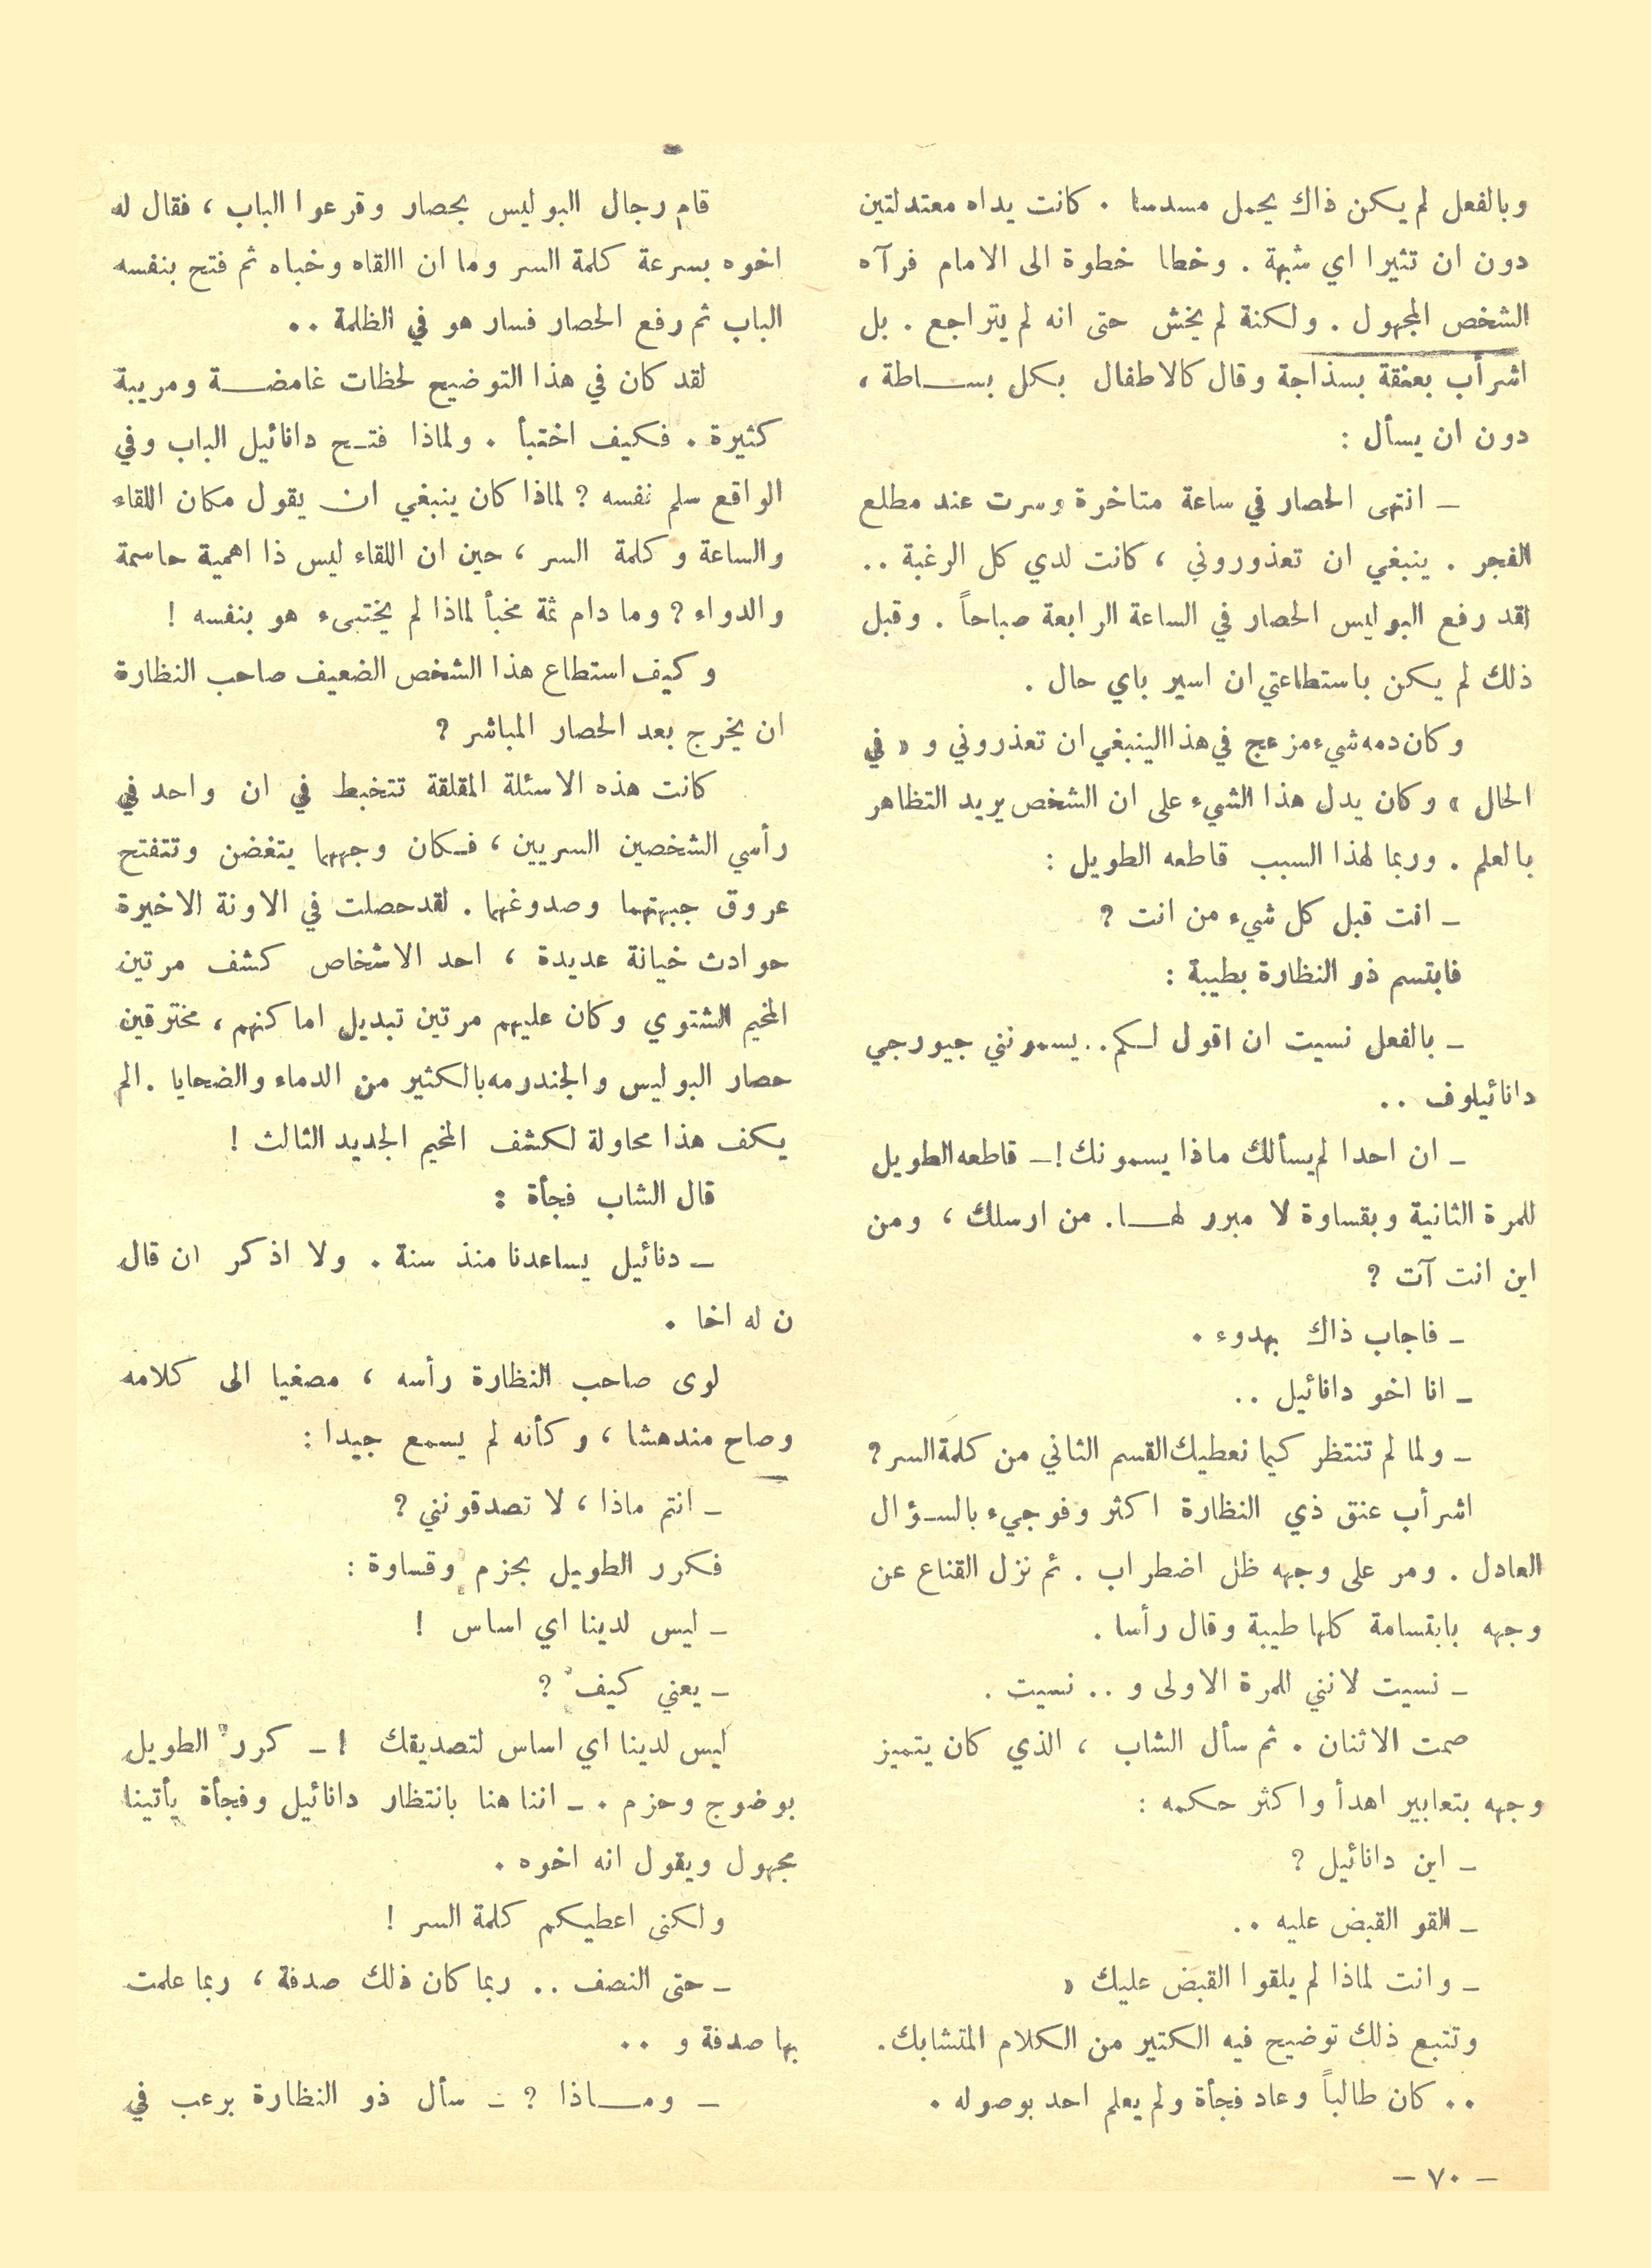 وبالفعل لم يكن ذاك يحمل مسدسا . كانت يداه معتدلتين
دون ان تثيرا اي شبهة . وخطا خطوة الى الامام فرآه
الشخص المجهول . ولكنة لم يخش حتى انه لم يتراجع . بل
اشرأب بعنقة بسذاجة وقال كالاطفال بكل بساطة ،
دون ان يسأل :
ـ انتهى الحصار في ساعة متاخرة وسرت عند مطلع
الفجر . ينبغي ان تعذوروني ، كانت لدي كل الرغبة ..
لقد رفع البوليس الحصار في الساعة الرابعة صباحاً . وقبل
ذلك لم يكن باستطاعتي ان اسير باي حال .
وكان دمه شيء مزعج في هذا الينبغي ان تعذروني و « في
الحال » وكان يدل هذا الشيء على ان الشخص يريد التظاهر
بالعلم . وربما لهذا السبب قاطعه الطويل :
ـ انت قبل كل شيء من انت ؟
فابتسم ذو النظارة بطيبة :
ـ بالفعل نسيت ان اقول لكم .. يسمونني جيورجي
دانائيلوف ..
ـ ان احدا لم يسألك ماذا يسمونك ! ـ قاطعه الطويل
للمرة الثانية وبقساوة لا مبرر لها . من ارسلك ، ومن
اين انت آت ؟
ـ فاجاب ذاك بهدوء .
ـ انا اخو دانائيل ..
ـ ولما لم تنتظر كيما نعطيك القسم الثاني من كلمة السر ؟
اشرأب عنق ذي النظارة اكثر وفوجيء بالسؤال
العادل . ومر على وجهه ظل اضطراب . ثم نزل القناع عن
وجهه بابتسامة كلها طيبة وقال رأسا .
ـ نسيت لانني للمرة الاولى و .. نسيت .
صمت الاثنان . ثم سأل الشاب ، الذي كان يتميز
وجهه بتعابير اهدأ واكثر حكمه :
ـ اين دانائيل ؟
ـ القو القبض عليه ..
ـ وانت لماذا لم يلقوا القبض عليك »
وتتبع ذلك توضيح فيه الكتير من الكلام المتشابك .
.. كان طالباً وعاد فجأة ولم يعلم احد بوصوله .
قام رجال البوليس بحصار وقرعوا الباب ، فقال له
اخوه بسرعة كلمة السر وما ان االقاه وخباه ثم فتح بنفسه
الباب ثم رفع الحصار فسار هو في الظلمة ..
لقد كان في هذا التوضيح لحظات غامضة ومريبة
كثيرة . فكيف اختبأ . ولماذا فتح دانائيل الباب وفي
الواقع سلم نفسه ؟ لماذا كان ينبغي ان يقول مكان اللقاء
والساعة وكلمة السر ، حين ان اللقاء ليس ذا اهمية حاسمة
والدواء ؟ وما دام ثمة مخبأ لماذا لم يختبىء هو بنفسه !
وكيف استطاع هذا الشخص الضعيف صاحب النظارة
ان يخرج بعد الحصار المباشر ؟
كانت هذه الاسئلة المقلقة تتخبط في ان واحد في
رأسي الشخصين السريين ، فكان وجهها يتغضن وتتفتح
عروق جبهتهما وصدوغهما . لقد حصلت في الاونة الاخيرة
حوادث خيانة عديدة ، احد الاشخاص كشف مرتين
المخيم الشتوي وكان عليهم مرتين تبديل اماكنهم ، مخترقين
حصار البوليس والجندرمه بالكثير من الدماء والضحايا . الم
يكف هذا محاولة لكشف المخيم الجديد الثالث !
قال الشاب فجأة :
ـ دنائيل يساعدنا منذ سنة . ولا اذكر ان قال
ن له اخا .
لوى صاحب النظارة رأسه ، مصغيا الى كلامه
وصاح مندهشا ، وكأنه لم يسمع جيدا :
ـ انتم ماذا ، لا تصدقونني ؟
فكرر الطويل بحزم وقساوة :
ـ ليس لدينا اي اساس !
ـ يعني كيف ؟
ليس لدينا اي اساس لتصديقك ! ـ كرر الطويل
بوضوح وحزم . ـ اننا هنا بانتظار دانائيل وفجأة يأتينا
مجهول ويقول انه اخوه .
ولكنى اعطيكم كلمة السر !
ـ حتى النصف .. ربما كان ذلك صدفة ، ربما علمت
بها صدفة و ..
ـ ومــاذا ؟ ـ سأل ذو النظارة برعب في
ـ ٧٠ ـ